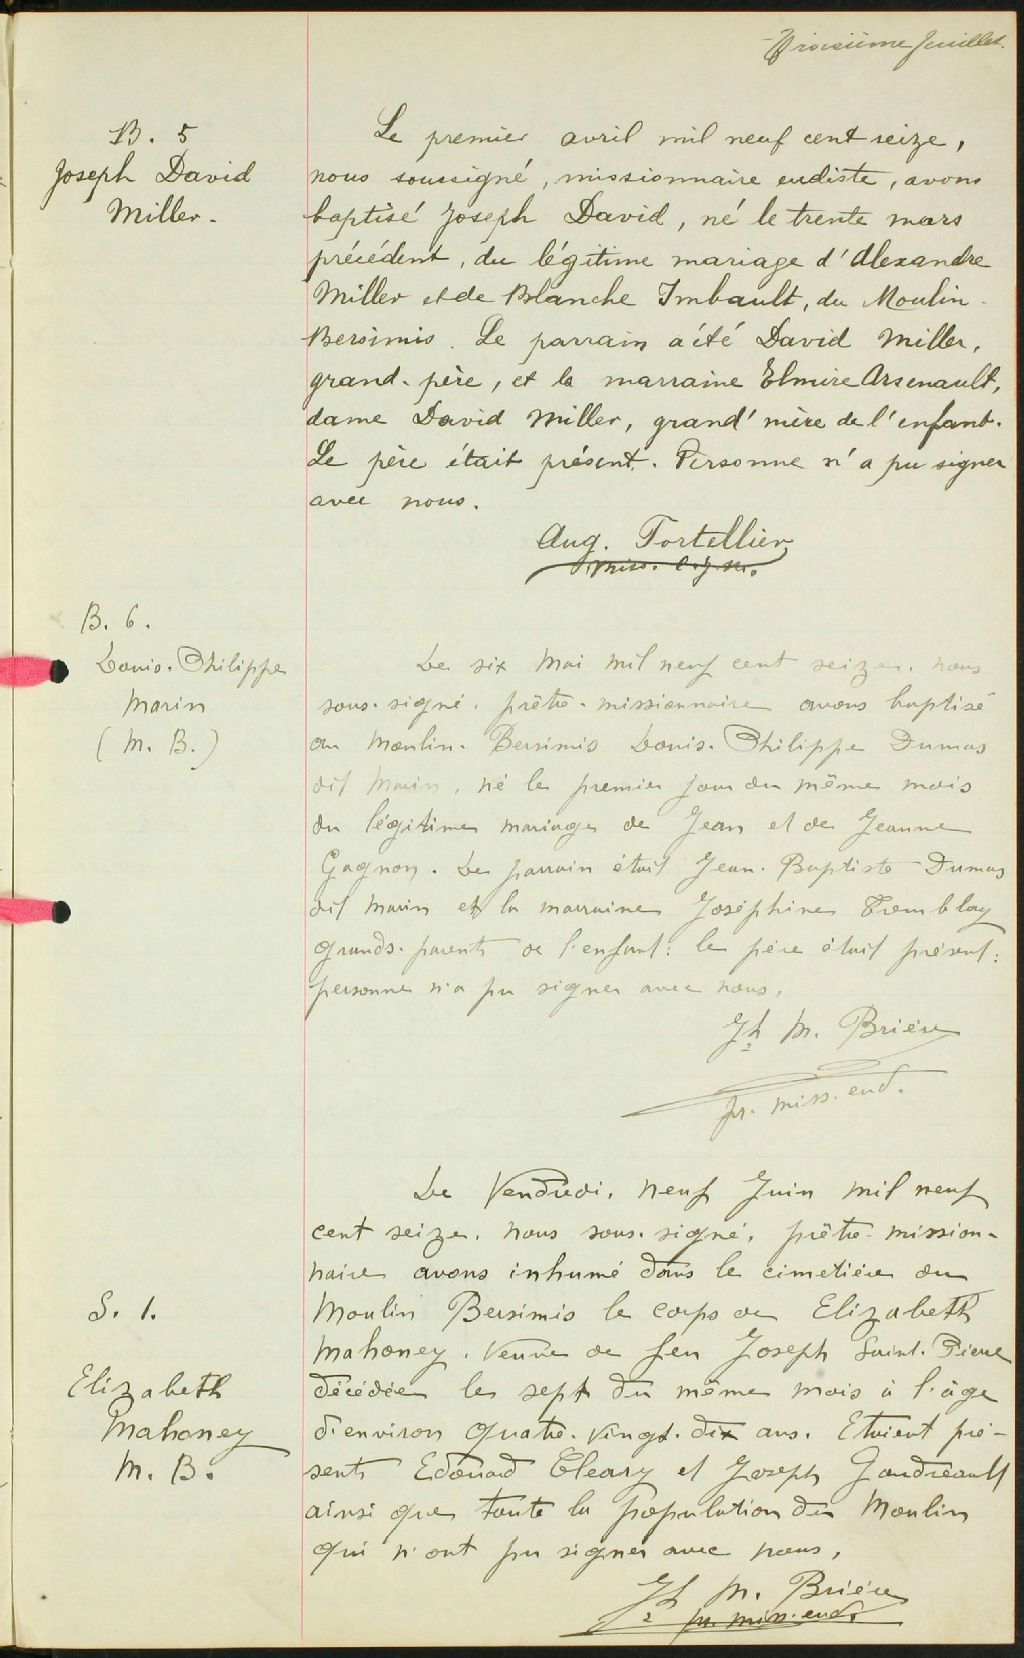 Troisième feuillet.
B. 5
Joseph David
Miller.
Le premier avril mil neuf cent seize,
nous soussigné, missionnaire eudiste, avons
baptisé Joseph David, né le trente mars
précédent, du légitime mariage d'Alexandre
Miller et de Blanche Imbault, du Moulin-
Bersimis. Le parrain a été David Miller,
grand-père, et la marraine Elmire Arsenault,
dame David Miller, grand'mère de l'enfant.
Le père était présent. Personne n'a pu signer
avec nous.
Aug. Tortellier
miss. c.j.m.
B. 6.
Louis-Philippe
Marin
(M. B.)
Le six Mai mil neuf cent seize, nous
sous-signé, prêtre-missionnaire avons baptisé
au Moulin-Bersimis Louis-Philippe Dumas
dit Marin, né le premier jour du même mois
du légitime mariage de Jean et de Jeanne
Gagnon. Le parrain était Jean-Baptiste Dumas
dit Marin et la marraine Joséphine Tremblay
grands-parents de l'enfant: le père était présent:
personne n'a pu signer avec nous.
Jh M. Brière
pr. miss. eud.
S. 1.
Elizabeth
Mahoney
M. B.
Le Vendredi, neuf Juin mil neuf
cent seize, nous sous-signé, prêtre-mission-
naire avons inhumé dans le cimetière du
Moulin Bersimis le corps de Elizabeth
Mahoney, Veuve de feu Joseph Saint-Pierre
décédée le sept du même mois à l'âge
d'environ quatre-vingt-dix ans. Etaient pré-
sents Edouard Cleary et Joseph Gaudreault
ainsi que toute la population du Moulin
qui n'ont pu signer avec nous.
Jh M. Brière
pr. miss. eud.